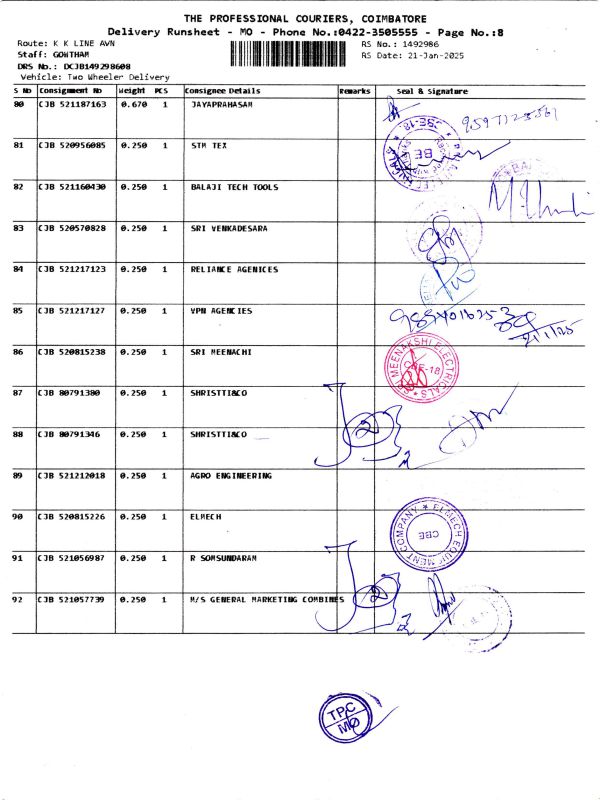 THE PROFESSIONAL COURIERS, COIMBATORE
Delivery Runsheet - MO - Phone No.:0422-3505555 - Page No.:8
Route: K K LINE AVN
RS No.: 1492986
Staff: GOWTHAM
RS Date: 21-Jan-2025
DRS No.: DCJB149298608
Vehicle: Two Wheeler Delivery
S No Consignment No Weight PCS Consignee Details Remarks Seal & Signature
80 CJB 521187163 0.670 1 JAYAPRAHASAM
81 CJB 520956085 0.250 1 STM TEX
82 CJB 521160430 0.250 1 BALAJI TECH TOOLS
83 CJB 520570828 0.250 1 SRI VENKADESARA
84 CJB 521217123 0.250 1 RELIANCE AGENICES
85 CJB 521217127 0.250 1 VPN AGENCIES
21/1/25
86 CJB 520815238 0.250 1 SRI MEENACHI
SRI MEENAKSHI ELECTRICALS
CBE-18
87 CJB 80791380 0.250 1 SHRISTTI&CO
88 CJB 80791346 0.250 1 SHRISTTI&CO
2
89 CJB 521212018 0.250 1 AGRO ENGINEERING
90 CJB 520815226 0.250 1 ELMECH
ELMECH EQUIPMENT COMPANY
CBE
91 CJB 521056987 0.250 1 R SOMSUNDARAM
92 CJB 521057739 0.250 1 M/S GENERAL MARKETING COMBINES
2
TPC
MO